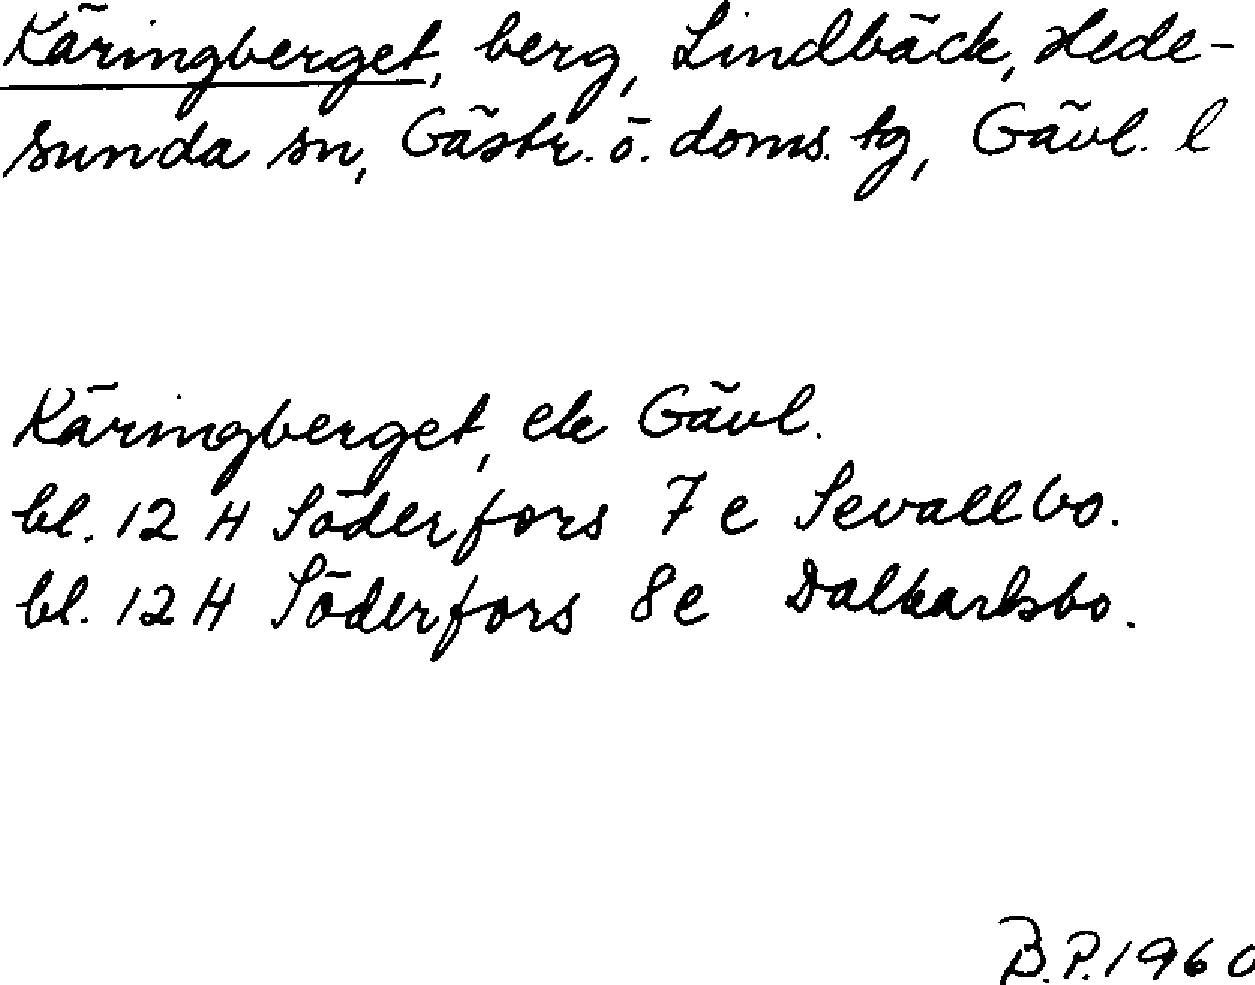 Käringberget, berg, Lindbäck, Hede-
sunda sn, Gästr. ö. doms. tg, Gävl. l
Käringberget, ek Gävl.
bl. 12 H Söderfors 7 e Sevallbo.
bl. 12 H Söderfors 8 e Dalkarlsbo.
B.P. 1960